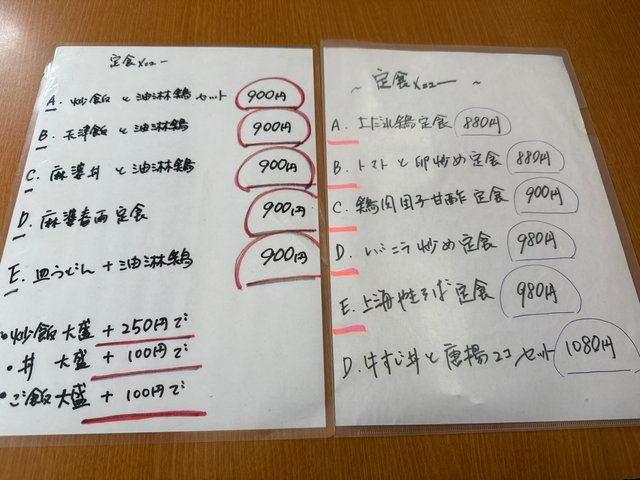 定食メニュー
A. 炒飯 と 油淋鶏 セット 900円
B. 天津飯 と 油淋鶏 900円
C. 麻婆丼 と 油淋鶏 900円
D. 麻婆春雨 定食 900円
E. 皿うどん + 油淋鶏 900円
・炒飯 大盛 + 250円で
・丼 大盛 + 100円で
・ご飯 大盛 + 100円で
~ 定食メニュー ~
A. よだれ鶏 定食 880円
B. トマト と 卵炒め 定食 880円
C. 鶏肉団子甘酢 定食 900円
D. レバニラ 炒め 定食 980円
E. 上海やきそば 定食 980円
D. 牛すじ丼 と 唐揚2コ セット 1080円